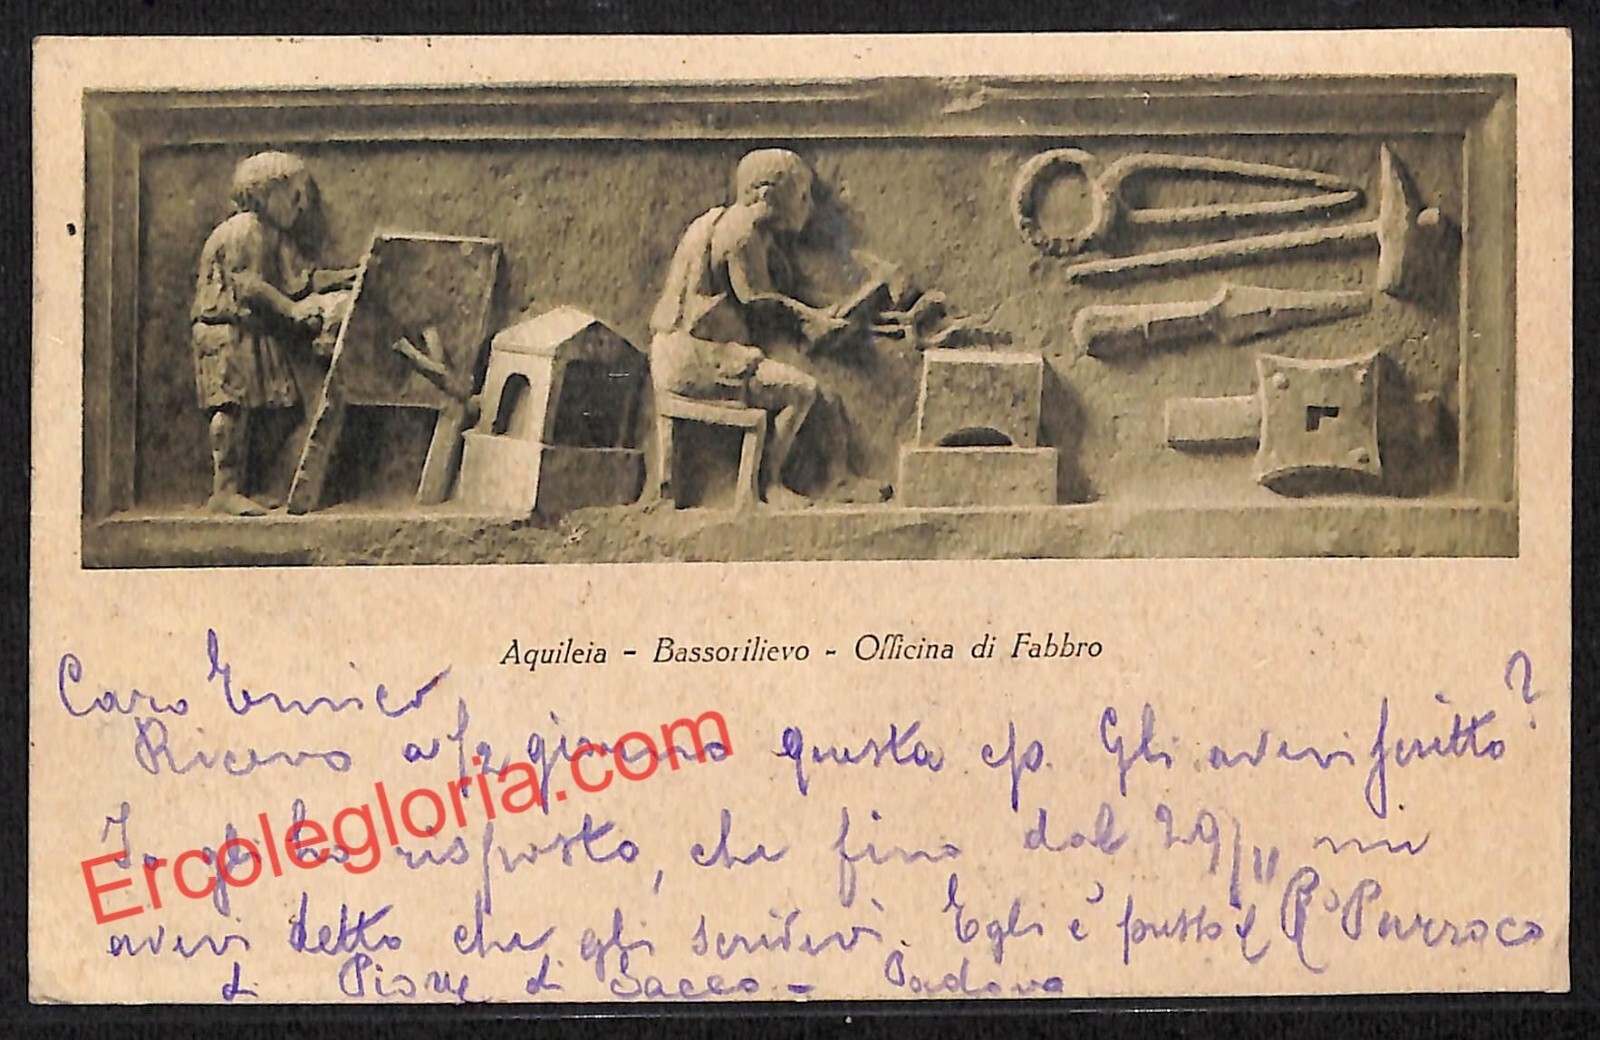 Aquileia - Bassorilievo - Officina di Fabbro
Caro Enrico,
Ricevo a 1/2 giorno questa c/p. Gli avevi scritto?
Io gli ho risposto, che fino dal 29/11 mi
avevi detto che gli scrivevi. Egli è presso il Rº Parroco
di Piove di Sacco - Padova
Ercolegloria.com